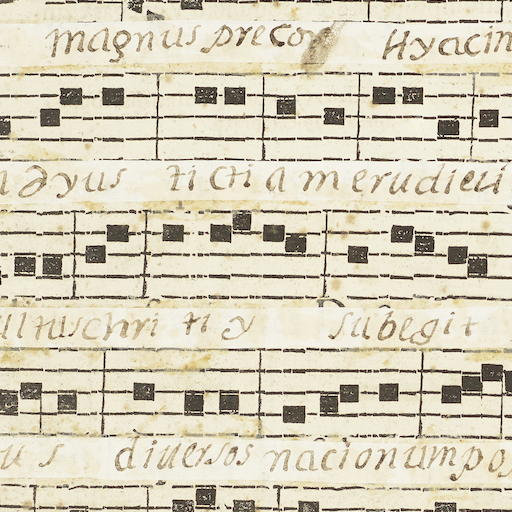 magnus preco Hyacin
dyus ti cti a m erudieti
ultuschri ti y subegit
u s diuersos nacionumpos